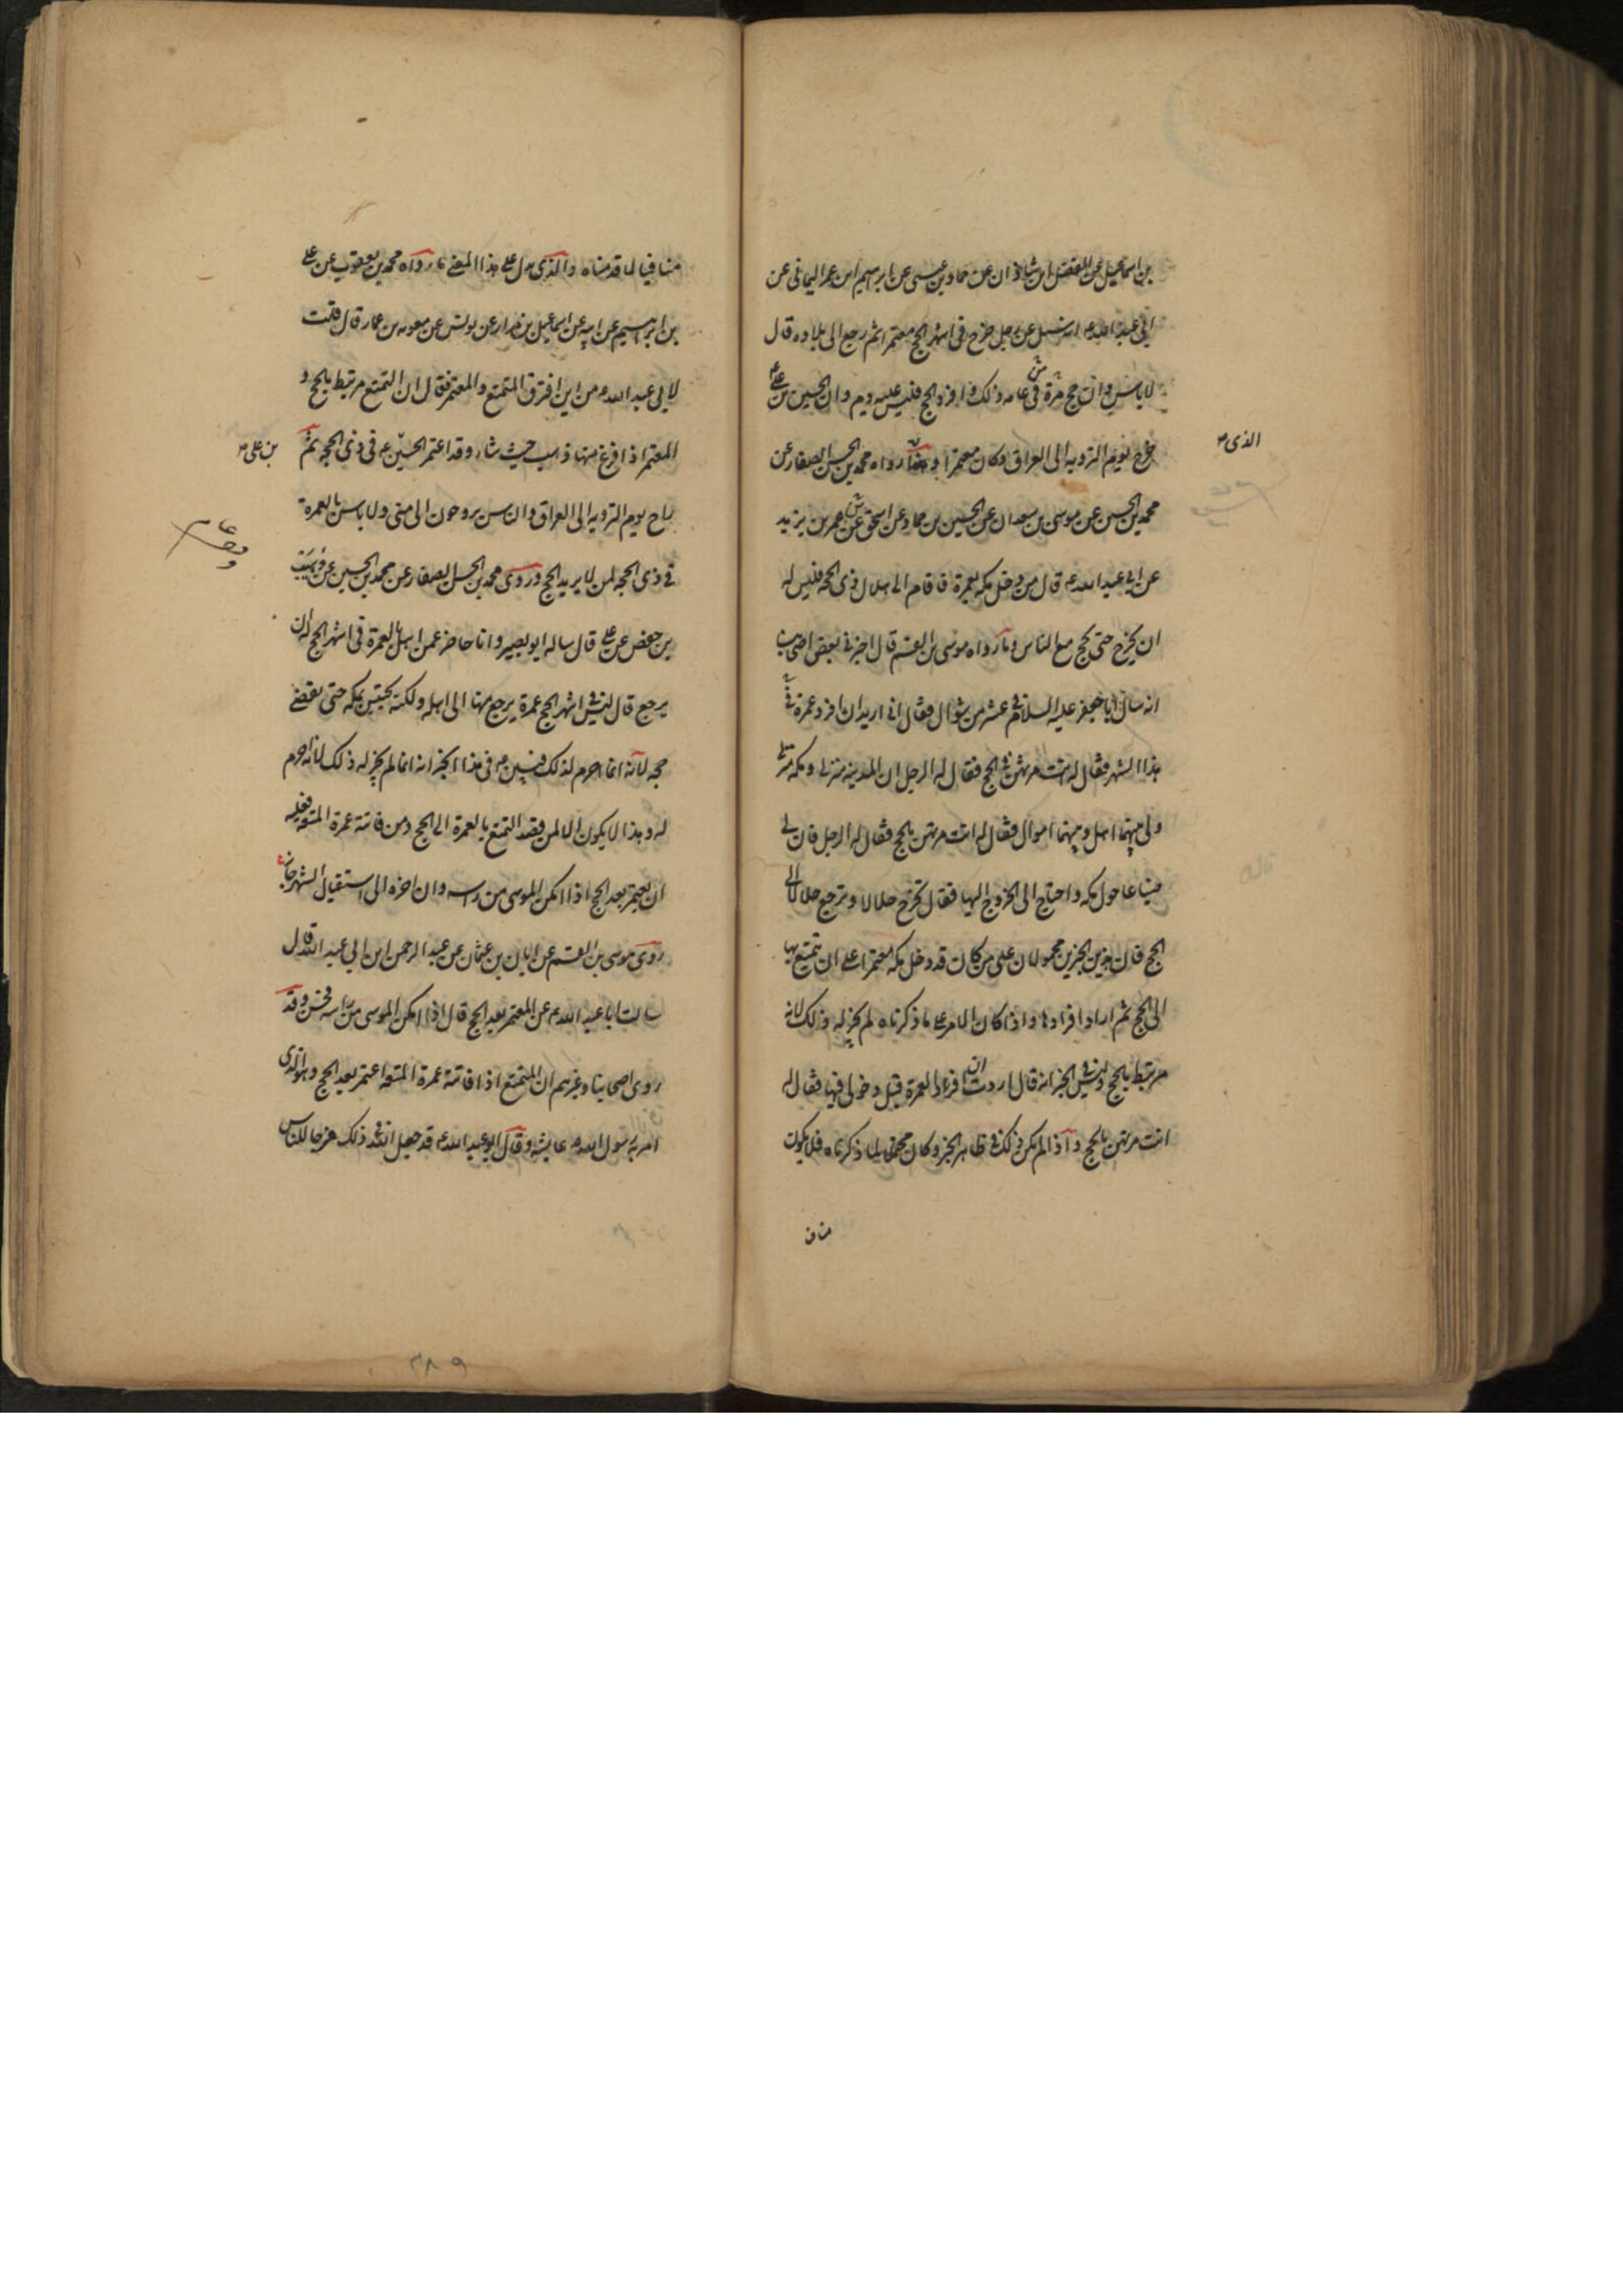 بن اسماعيل عن الفضل ابن شاذان عن حماد بن عيسى عن ابرهيم ابن عمر اليمانى عن
ابى عبد الله ع انه سئل عن رجل خرج فى اشهر الحج معتمرا ثم رجع الى بلاده قال
لا باس وان حج من عامه ذلك وافرد الحج فليس عليه دم وان الحسين بن على ع
خرج يوم التروية الى العراق وكان معتمرا و رواه محمد بن الحسن الصفار عن
الذى
محمد بن الحسين عن موسى بن سعدان عن الحسين بن حماد عن اسحق عن عمر بن يزيد
عن ابى عبد الله ع قال من دخل مكه بعمرة فاقام الى هلال ذى الحجه فليس له
ان يخرج حتى يحج مع الناس وما رواه موسى بن القسم قال اخبرنى بعض اصحابنا
انه سال ابا جعفر عليه السلام فى عشر من شوال فقال انى اريد ان افرد عمرة فى
هذا الشهر فقال له انت مرتهن بالحج فقال له الرجل ان المدينه منزلى ومكه منزلى
ولى بينهما اهل وبينهما اموال فقال له انت مرتهن بالحج فقال له الرجل فان لى
ضياعا حول مكه واحتاج الى الخروج اليها فقال تخرج حلالا وترجع حلالا الى
الحج فان هذين الخبرين محمولان على من كان قد دخل مكه معتمرا على ان يتمتع بها
الى الحج ثم اراد افرادها واذا كان الامر على ما ذكرناه لم يجز له ذلك لانه
مرتبط بالحج وليس فى الخبر انه قال اردت ان افراد العمرة قبل دخولى فيها فقال له
انت مرتهن بالحج واذا لم يكن ذلك فى ظاهر الخبر وكان محتملا لما ذكرناه فلا يكون
مناف
منافيا لما قدمناه والذى يدل على هذا المعنى ما رواه محمد بن يعقوب عن على
بن ابرهيم عن ابيه عن اسماعيل بن مرار عن يونس عن معوية بن عمار قال قلت
لابى عبد الله ع من اين افترق المتمتع والمعتمر فقال ان المتمتع مرتبط بالحج و
المعتمر اذا فرغ منها ذهب حيث شاء وقد اعتمر الحسين ع فى ذى الحجه ثم
بن على
راح يوم الترويه الى العراق والناس يروحون الى منى ولا باس بالعمرة
فى ذى الحجه لمن لا يريد الحج وروى محمد بن الحسن الصفار عن محمد بن الحسين عن وهيب
بن حفص عن على قال ساله ابو بصير وانا حاضر عمن اهل بالعمرة فى اشهر الحج له ان
يرجع قال ليس فى اشهر الحج عمرة يرجع منها الى اهله ولكنه يحتبس بمكه حتى يقضى
حجه لانه انما احرم لذلك فبين ع فى هذا الخبر انه انما لم يجز له ذلك لانه احرم
له وهذا لا يكون الا لمن قصد التمتع بالعمرة الى الحج ومن فاتته عمرة المتعه فعليه
ان يعتمر بعد الحج اذا امكن الموسى من راسه وان اخره الى استقبال الشهر جاز
روى موسى بن القسم عن ابان بن عثمان عن عبد الرحمن ابن ابى عبد الله قال
سالت ابا عبد الله ع عن المعتمر بعد الحج قال اذا امكن الموسى من راسه فحسن وقد
روى اصحابنا وغيرهم ان المتمتع اذا فاتته عمرة المتعه اعتمر بعد الحج وهو الذى
امر به رسول الله ص عايشه وقال ابو عبد الله ع قد جعل الله فى ذلك فرجا للناس
۳۸۹